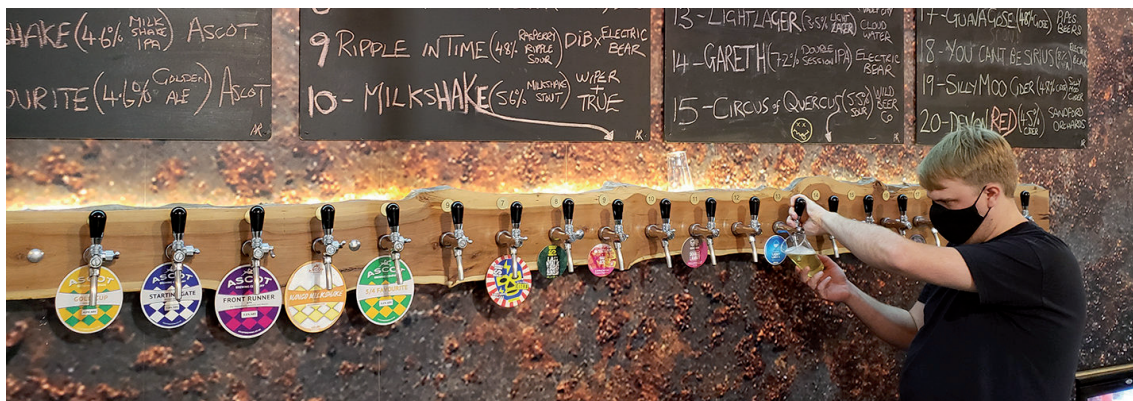 SHAKE (4.6% MILK SHAKE IPA) ASCOT
OURITE (4.6% GOLDEN ALE) ASCOT
9 RIPPLE IN TIME (4.8% RASPBERRY RIPPLE SOUR) DIB x ELECTRIC BEAR
10 - MILKSHAKE (5.6% MILKSHAKE STOUT) WIPER + TRUE
13 - LIGHT LAGER (3.5% LIGHT LAGER) CLOUD WATER
14 - GARETH (7.2% DOUBLE SESSION IPA) ELECTRIC BEAR
15 - CIRCUS of QUERCUS (5.5% SOUR) WILD BEER CO
17 - GUAVA GOSE (4.8% GOSE) BEERS
18 - YOU CANT BE SIRIUS
19 - SILLY MOO CIDER (4.8% CIDER) SILLY MOO CIDER
20 - DEVON RED (4.5% CIDER) SANDFORD ORCHARDS
6
7
8
9
10
11
12
ASCOT
GOLD CUP
ASCOT
STARTING GATE
ASCOT
FRONT RUNNER
MANGO MILKSHAKE
ASCOT
5/4 FAVOURITE